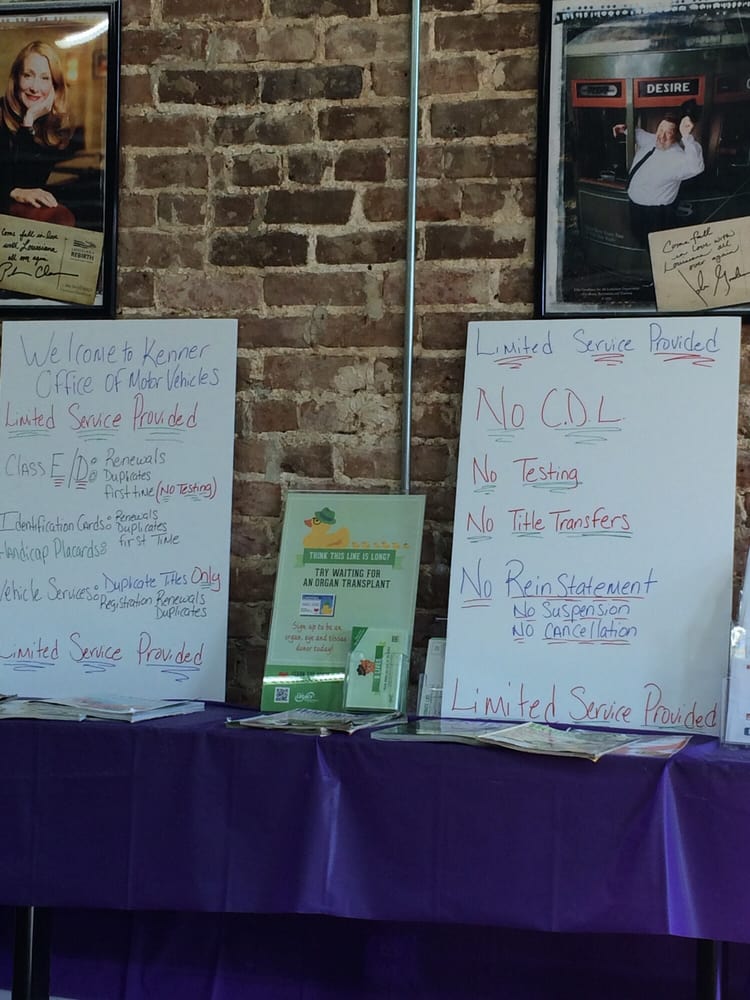 Come fall in love
with Louisiana
all over again
REBIRTH
DESIRE
Come fall
in love with
Louisiana all
over again
Welcome to Kenner
Office Of Motor Vehicles
Limited Service Provided
Class E/D: Renewals
Duplicates
first time (No Testing)
Identification Cards: Renewals
Duplicates
first Time
Handicap Placards:
Vehicle Services: Duplicate Titles Only
Registration Renewals
Duplicates
Limited Service Provided
THINK THIS LINE IS LONG?
TRY WAITING FOR
AN ORGAN TRANSPLANT
Sign up to be an
organ, eye and tissue
donor today!
Limited Service Provided
No C.D.L.
No Testing
No Title Transfers
No ReinStatement
No Suspension
No Cancellation
Limited Service Provided